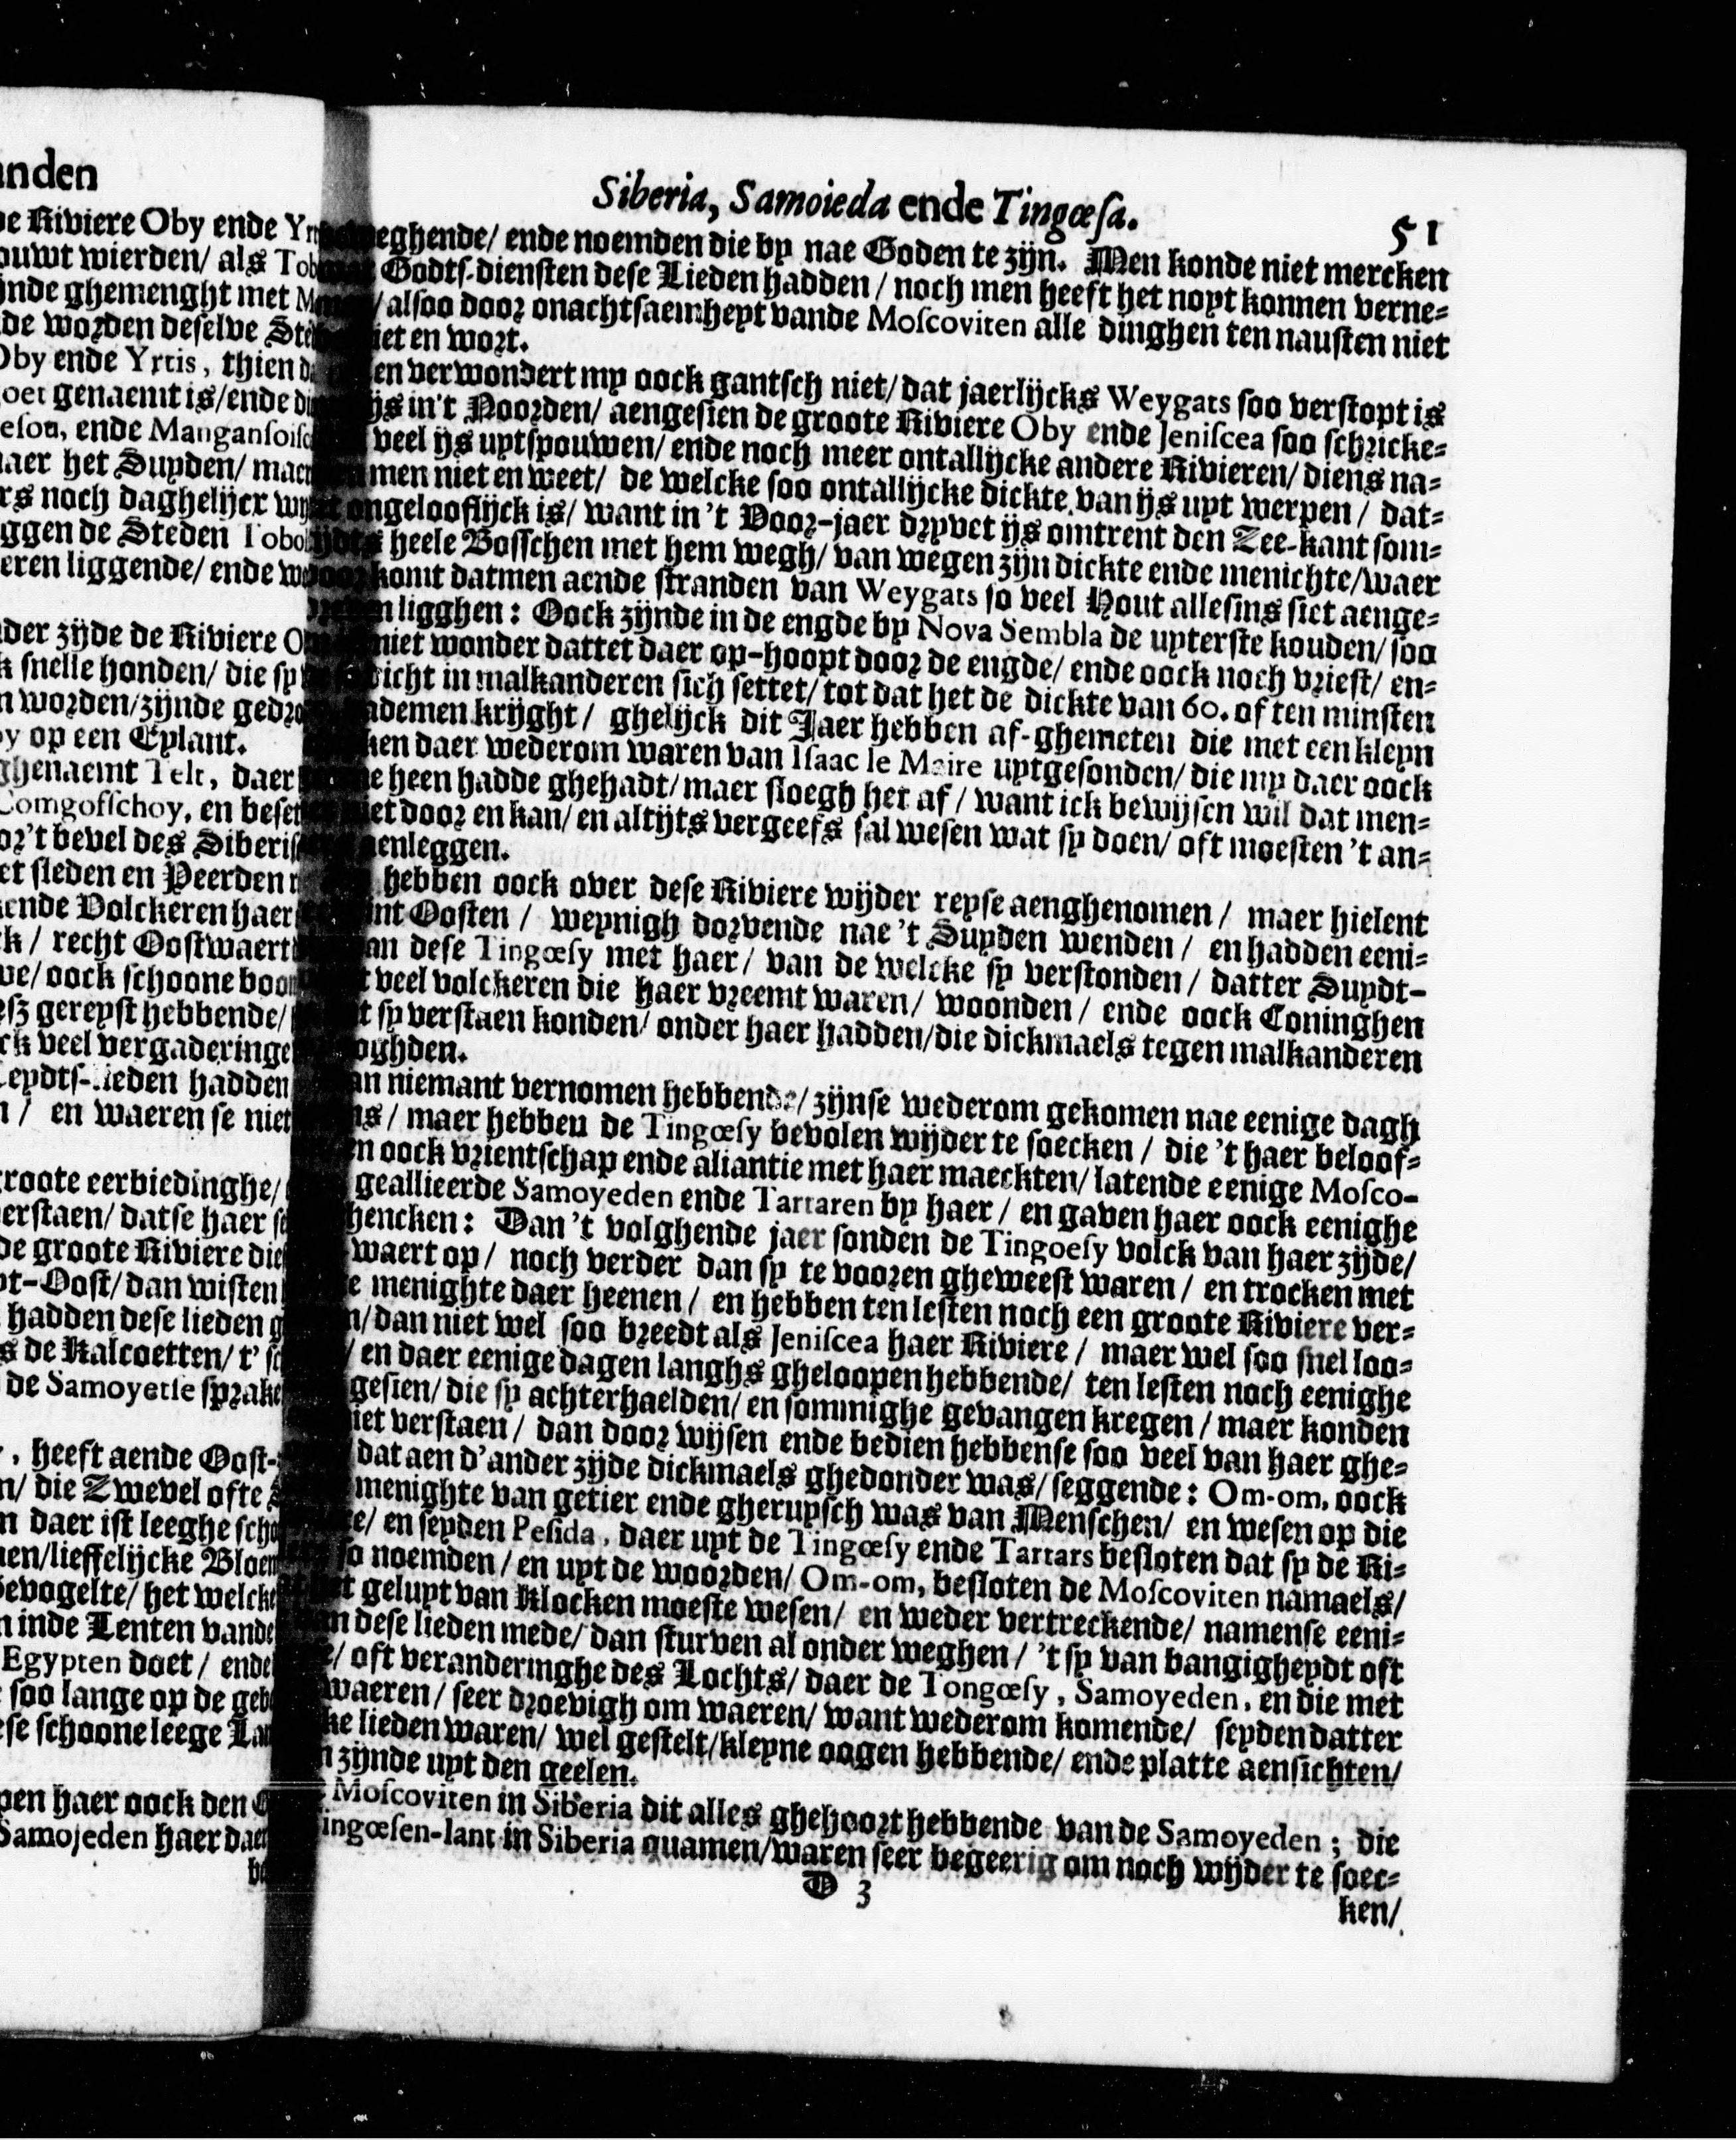 anden
de Riviere Oby ende Yr
ouwt wierden/ als Tob
ynde ghemenght met M
de worden deselve Ste
Oby ende Yrtis, thien d
oet genaemt is/ende di
esou, ende Manganſoiſc
aer het Suyden/ maer
rs noch daghelijcx wy
ggen de Steden Tobol
eren liggende/ ende w
der zijde de Riviere O
k snelle honden/ die sy
n worden/zijnde gedro
oy op een Eylant.
ghenaemt Telt, daer
Comgofſchoy, en beset
or't bevel des Siberis
et sleden en Peerden
ende Volckeren haer
k / recht Oostwaert
ve/ oock schoone boo
esz gereyst hebbende/
ck veel vergaderinge
Leydts-lieden hadden
n / en waeren se niet
groote eerbiedinghe/
erstaen/ datse haer s
de groote Riviere die
dt-Oost/ dan wisten
hadden dese lieden g
s de Kalcoetten/ t' s
de Samoyetſe sprake
, heeft aende Oost-
n/ die Zwevel ofte
n daer ist leeghe scho
nen/lieffelijcke Bloem
Gevogelte/ het welcke
n inde Lenten vande
Egypten doet / ende
soo lange op de geb
se schoone leege Lan
pen haer oock den
Samojeden haer daer
be
Siberia, Samoieda ende Tingœſa. 51
eghende/ ende noemden die by nae Goden te zijn. Men konde niet mercken
Godtſ-dienſten deſe Lieden hadden / noch men heeft het noyt konnen verne-
/ alſoo door onachtſaemheyt vande Moſcoviten alle dinghen ten nauſten niet
iet en wort.
en verwondert my oock gantſch niet/ dat jaerlijcks Weygats ſoo verſtopt is
ijs in't Noorden/ aengeſien de groote Riviere Oby ende Jeniſcea ſoo ſchricke-
veel ijs uytſpouwen/ ende noch meer ontallijcke andere Rivieren/ diens na-
men niet en weet/ de welcke ſoo ontallijcke dickte van ijs uyt werpen / dat-
ongelooflijck is/ want in 't Voor-jaer dryvet ijs omtrent den Zee-kant ſom-
tijdts heele Boſſchen met hem wegh/ van wegen zijn dickte ende menichte/waer
door komt datmen aende ſtranden van Weygats ſo veel Hout alleſins ſiet aenge-
ligghen: Oock zijnde in de engde by Nova Sembla de uyterſte kouden/ ſoo
niet wonder dattet daer op-hoopt door de engde/ ende oock noch vrieſt/ en-
dicht in malkanderen ſich ſettet/ tot dat het de dickte van 60. of ten minſten
vademen krijght / ghelijck dit Jaer hebben af-ghemeten die met een kleyn
ken daer wederom waren van Iſaac le Maire uytgeſonden/ die my daer oock
heen hadde ghehadt/ maer ſloegh het af / want ick bewijſen wil dat men-
niet door en kan/ en altijts vergeefs ſal weſen wat ſy doen/ oft moeſten 't an-
aenleggen.
hebben oock over deſe Riviere wijder reyſe aenghenomen / maer hielent
int Ooſten / weynigh dorvende nae 't Suyden wenden / en hadden eeni-
van deſe Tingœſy met haer / van de welcke ſy verſtonden / datter Suydt-
veel volckeren die haer vreemt waren/ woonden / ende oock Coninghen
t ſy verſtaen konden/ onder haer hadden/die dickmaels tegen malkanderen
oghden.
an niemant vernomen hebbende/ zijnſe wederom gekomen nae eenige dagh
ns / maer hebben de Tingœſy bevolen wijder te ſoecken / die 't haer beloof-
en oock vrientſchap ende aliantie met haer maeckten/ latende eenige Moſco-
geallieerde Samoyeden ende Tartaren by haer / en gaven haer oock eenighe
ſchencken: Dan 't volghende jaer ſonden de Tingoeſy volck van haer zijde/
waert op / noch verder dan ſy te vooren gheweeſt waren / en trocken met
e menighte daer heenen / en hebben ten leſten noch een groote Riviere ver-
n/ dan niet wel ſoo breedt als Jeniſcea haer Riviere / maer wel ſoo ſnel loo-
/ en daer eenige dagen langhs gheloopen hebbende/ ten leſten noch eenighe
geſien/ die ſy achterhaelden/ en ſommighe gevangen kregen / maer konden
niet verſtaen / dan door wijſen ende bedien hebbenſe ſoo veel van haer ghe-
dat aen d'ander zijde dickmaels ghedonder was/ ſeggende: Om-om, oock
menighte van getier ende gheruyſch was van Menſchen/ en weſen op die
e/ en ſeyden Peſida, daer uyt de Tingœſy ende Tartars beſloten dat ſy de Ri-
ſo noemden / en uyt de woorden/ Om-om, beſloten de Moſcoviten namaels/
het geluyt van Klocken moeſte weſen/ en weder vertreckende/ namenſe eeni-
an deſe lieden mede/ dan ſturven al onder weghen / 't ſy van bangigheydt oft
e/ oft veranderinghe des Lochts/ daer de Tongœſy, Samoyeden, en die met
waeren / ſeer droevigh om waeren/ want wederom komende/ ſeyden datter
ke lieden waren/ wel geſtelt/kleyne oogen hebbende/ ende platte aenſichten/
n zijnde uyt den geelen.
Moſcoviten in Siberia dit alles ghehoort hebbende van de Samoyeden ; die
ingœſen-lant in Siberia quamen/waren ſeer begeerig om noch wijder te ſoec-
D 3
ken/